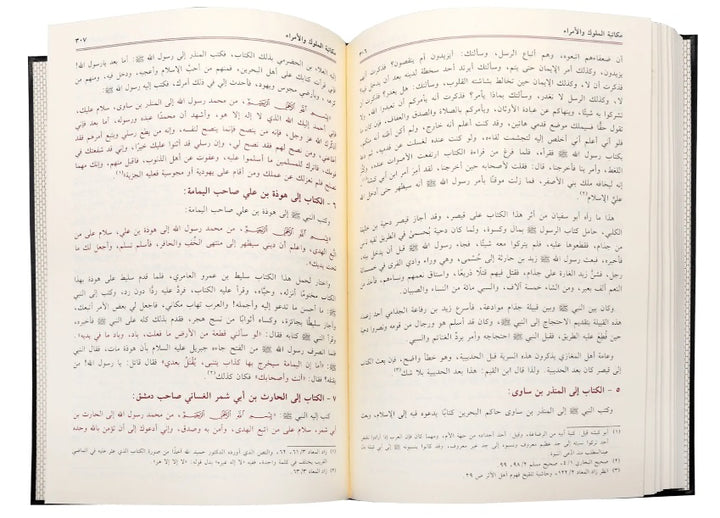 مكاتبة الملوك والأمراء
٣٠٦
أن ضعفاءهم اتبعوه، وهم أتباع الرسل، وسألتك: أيزيدون أم ينقصون؟ فذكرت أنهم
يزيدون، وكذلك أمر الإيمان حتى يتم. وسألتك أيرتد أحد سخطة لدينه بعد أن يدخل فيه؟
فذكرت أن لا، وكذلك الإيمان حين تخالط بشاشته القلوب، وسألتك: هل يغدر؟ فذكرت أن
لا، وكذلك الرسل لا تغدر، وسألتك بماذا يأمر؟ فذكرت أنه يأمركم أن تعبدوا الله، ولا
تشركوا به شيئًا، وينهاكم عن عبادة الأوثان، ويأمركم بالصلاة والصدق والعفاف، فإن كان ما
تقول حقًّا فسيملك موضع قدمي هاتين، وقد كنت أعلم أنه خارج، ولم أكن أظنه أنه منكم،
فلو أني أعلم أني أخلص إليه لتجشمت لقاءه، ولو كنت عنده لغسلت عن قدميه، ثم دعا
بكتاب رسول الله ﷺ فقرأه، فلما فرغ من قراءة الكتاب ارتفعت الأصوات عنده وكثر
اللغط، وأمر بنا فأخرجنا، قال: فقلت لأصحابي حين أخرجنا، لقد أمر أمر ابن أبي كبشة(١)،
إنه ليخافه ملك بني الأصفر، فما زلت موقنًا بأمر رسول الله ﷺ أنه سيظهر حتى أدخل الله
عليَّ الإسلام(٢)
هذا ما رآه أبو سفيان من أثر هذا الكتاب على قيصر، وقد أجاز قيصر دحية بن خليفة
الكلبي، حامل كتاب الرسول ﷺ بمال وكسوة، ولما كان دحية بحُسمىٰ في الطريق لقيه ناس
من جذام، فقطعوها عليه، فلم يتركوا معه شيئًا، فجاء رسول الله ﷺ قبل أن يدخل بيته،
فأخبره، فبعث رسول الله ﷺ زيد بن حارثة إلى حُسمىٰ، وهي وراء وادي القرى في خمسمائة
رجل، فشنَّ زيد الغارة على جذام، فقتل فيهم قتلًا ذريعًا، واستاق نعمهم ونساءهم، فأخذ من
النعم ألف بعير، ومن الشاء خمسة آلاف، والسبي مائة من النساء والصبيان.
وكان بين النبي ﷺ وبين قبيلة جذام موادعة، فأسرع زيد بن رفاعة الجذامي أحد زعماء
هذه القبيلة بتقديم الاحتجاج إلى النبي ﷺ، وكان قد أسلم هو ورجال من قومه ونصروا دحية
حين قُطع عليه الطريق، فقبل النبي ﷺ احتجاجه وأمر برد الغنائم والسبي.
وعامة أهل المغازي يذكرون هذه السرية قبل الحديبية، وهو خطأ واضح، فإن بعث الكتاب
إلى قيصر كان بعد الحديبية. ولذا قال ابن القيم: هذا بعد الحديبية بلا شك(٣)
٥ - الكتاب إلى المنذر بن ساوى:
وكتب النبي ﷺ إلى المنذر بن ساوى حاكم البحرين كتابًا يدعوه فيه إلى الإسلام، وبعث
(٢) صحيح البخاري ٤/١، صحيح مسلم ٩٨/٢، ٩٩.
(٣) انظر زاد المعاد ١٢٢/٢، وحاشية تلقيح فهوم أهل الأثر ص ٢٩.
مكاتبة الملوك والأمراء
٣٠٧
إليه العلاء بن الحضرمي بذلك الكتاب، فكتب المنذر إلى رسول الله ﷺ: أما بعد يا رسول الله!
فإني قرأت كتابك على أهل البحرين، فمنهم من أحب الإسلام وأعجبه، ودخل فيه، ومنهم من
كرهه، وبأرضي مجوس ويهود، فأحدث إلي في ذلك أمرك، فكتب إليه رسول الله ﷺ
بسم الله الرحمن الرحيم، من محمد رسول الله إلى المنذر بن ساوى، سلام عليك،
فإني أحمد إليك الله الذي لا إله إلا هو، وأشهد أن محمدًا عبده ورسوله، أما بعد فإني
أذكرك الله عز وجل، فإنه من ينصح فإنما ينصح لنفسه، وإنه من يطع رسلي ويتبع أمرهم فقد
أطاعني، ومن نصح لهم فقد نصح لي، وإن رسلي قد أثنوا عليك خيرًا، وإني قد شفعتك في
قومك، فاترك للمسلمين ما أسلموا عليه، وعفوت عن أهل الذنوب، فاقبل منهم، وإنك مهما
تصلح فلم نعزلك عن عملك ومن أقام على يهودية أو مجوسية فعليه الجزية(١).
٦ - الكتاب إلى هوذة بن علي صاحب اليمامة:
وكتب النبي ﷺ إلى هوذة بن علي صاحب اليمامة:
بسم الله الرحمن الرحيم، من محمد رسول الله إلى هوذة بن علي، سلام على من
اتبع الهدى، واعلم أن ديني سيظهر إلى منتهى الخُف والحافر، فأسلم تسلم، وأجعل لك ما
تحت يديك.
واختار لحمل هذا الكتاب سليط بن عمرو العامري، فلما قدم سليط على هوذة بهذا
الكتاب مختومًا أنزله، وحيَّاه، وقرأ عليه الكتاب، فردَّ عليه ردًّا دون رد، وكتب إلى النبي
ﷺ: ما أحسن ما تدعو إليه وأجمله! والعرب تهاب مكاني، فاجعل لي بعض الأمر أتبعك،
وأجاز سليطًا بجائزة، وكساه أثوابًا من نسج هجر، فقدم بذلك كله على النبي ﷺ فأخبره،
وقرأ النبي ﷺ كتابه فقال: لو سألني قطعة من الأرض ما فعلت، باد، وباد ما في يديه،
فلما انصرف رسول الله ﷺ من الفتح جاءه جبريل عليه السلام بأن هوذة مات، فقال النبي
ﷺ: أما إن اليمامة سيخرج بها كذاب يتنبى، يُقتل بعدي، فقال قائل: يا رسول الله! من
يقتله؟ فقال: أنت وأصحابك، فكان كذلك(٢).
٧ - الكتاب إلى الحارث بن أبي شمر الغساني صاحب دمشق:
كتب إليه النبي ﷺ: بسم الله الرحمن الرحيم، من محمد رسول الله إلى الحارث بن
أبي شمر، سلام على من اتبع الهدى، وآمن به وصدق، وإني أدعوك إلى أن تؤمن بالله وحده